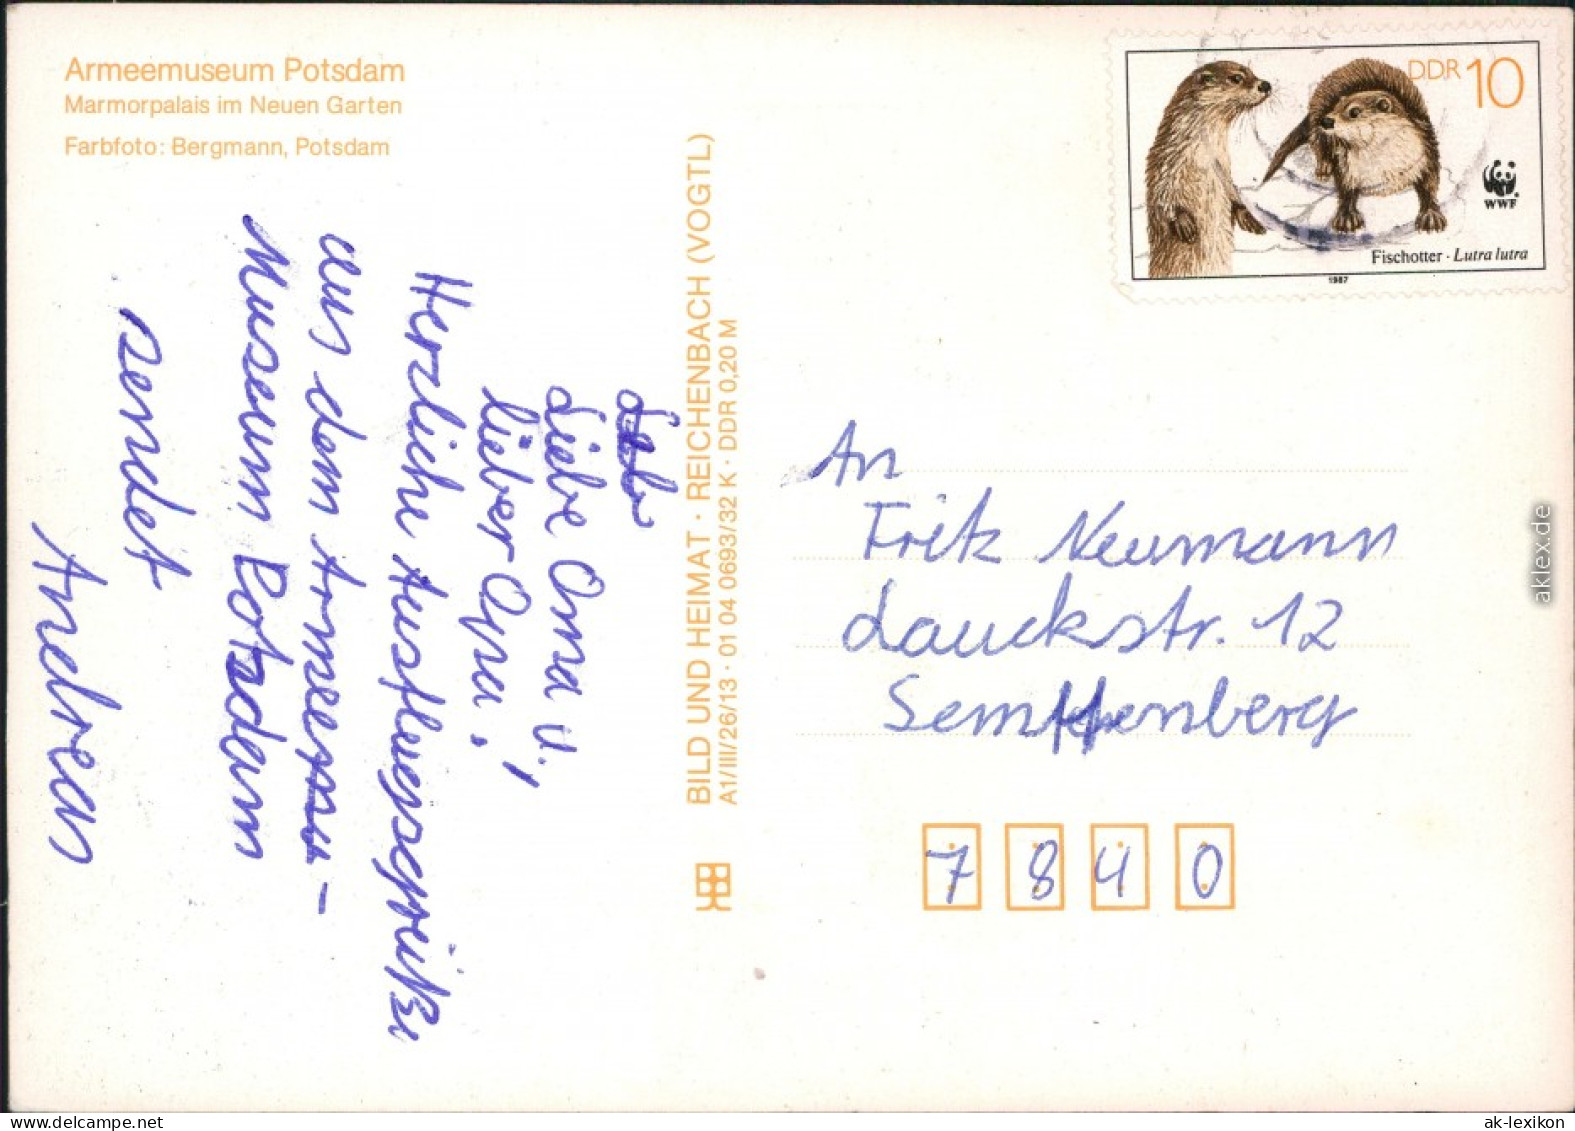 Armeemuseum Potsdam
Marmorpalais im Neuen Garten
Farbfoto: Bergmann, Potsdam
Liebe Oma u.,
lieber Opa!
Herzliche Ausfluegsgrüße
aus dem Armeemu-
Museum Potsdam
sendet
Andreas
BILD UND HEIMAT · REICHENBACH (VOGTL)
A1/III/26/13 · 01 04 0693/32 K · DDR 0,20 M
DDR 10
WWF
Fischotter · Lutra lutra
1987
An
Fritz Neumann
Lauckstr. 12
Semftenberg
7840
aklex.de
ak-lexikon